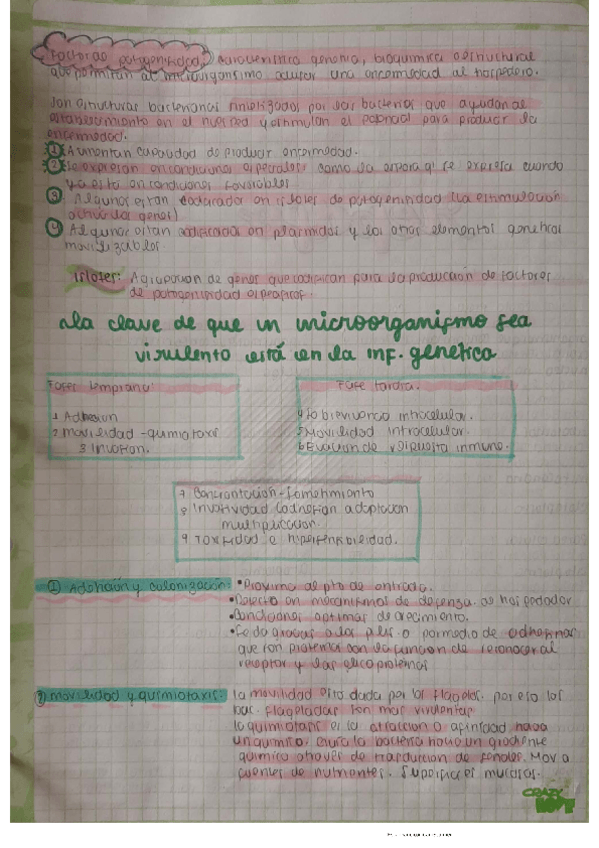 Factores patogenicidad: característica genoma, bioquímica o estructural
que permiten al microorganismo causar una enfermedad al hospedero.
Son estructuras bacterianas por las bacterias que ayudan al
establecimiento en el huésped y estimulan el potencial para producir la
enfermedad.
① Aumentan capacidad de producir enfermedad.
② Se expresan en condiciones especiales como la espora q' se expresa cuando
ya está en condiciones favorables
③ Algunos están codificados en islotes de patogenicidad (la estimulación
activa los genes)
④ Algunos están codificados en plásmidos y los otros elementos genéticos
movilizables.
Islotes: Agrupación de genes que codifican para la producción de factores
de patogenicidad específicos.
La clave de que un microorganismo sea
virulento está en la inf. genética
Fases temprana:
1 Adhesión
2 Movilidad - quimiotaxis
3 Invasión.
Fase tardía.
4 Sobrevivencia intracelular.
5 Movilidad intracelular.
6 Evación de respuesta inmune.
7 - Sometimiento
8 Invasividad (adhesión adaptación
multiplicación.
9 Toxicidad e hipersensibilidad.
① Adhesión y colonización: • Próximo al pto de entrada.
• Defecto en mecanismos de defenza de hospedador
• Condiciones óptimas de crecimiento.
• Se da gracias a los pilis o por medio de adhesinas
que son proteínas con la función de reconocer al
receptor y las glicoproteínas
② Movilidad y quimiotaxis: la movilidad está dada por los flagelos. por eso los
bac. flageladas son más virulentas
la quimiotaxis es la atracción o afinidad hacia
un químico. la bacteria hacia un gradiente
químico através de transducción de señales. Mov a
fuentes de nutrientes. Superficies mucosas.
CRAZY